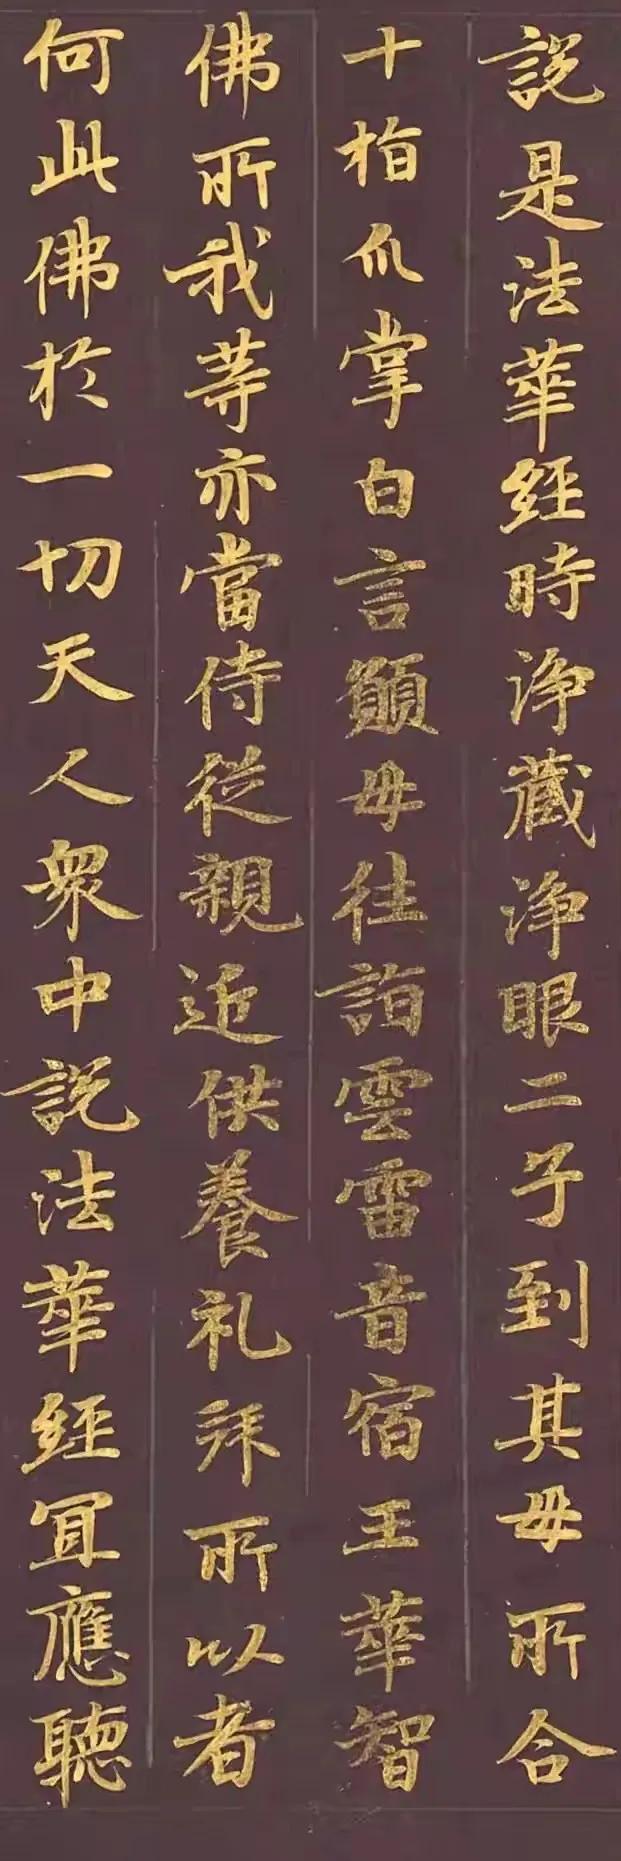 說是法華經時淨藏淨眼二子到其母所合
十指爪掌白言願母往詣雲雷音宿王華智
佛所我等亦當侍從親近供養礼拜所以者
何此佛於一切天人衆中說法華經宜應聽